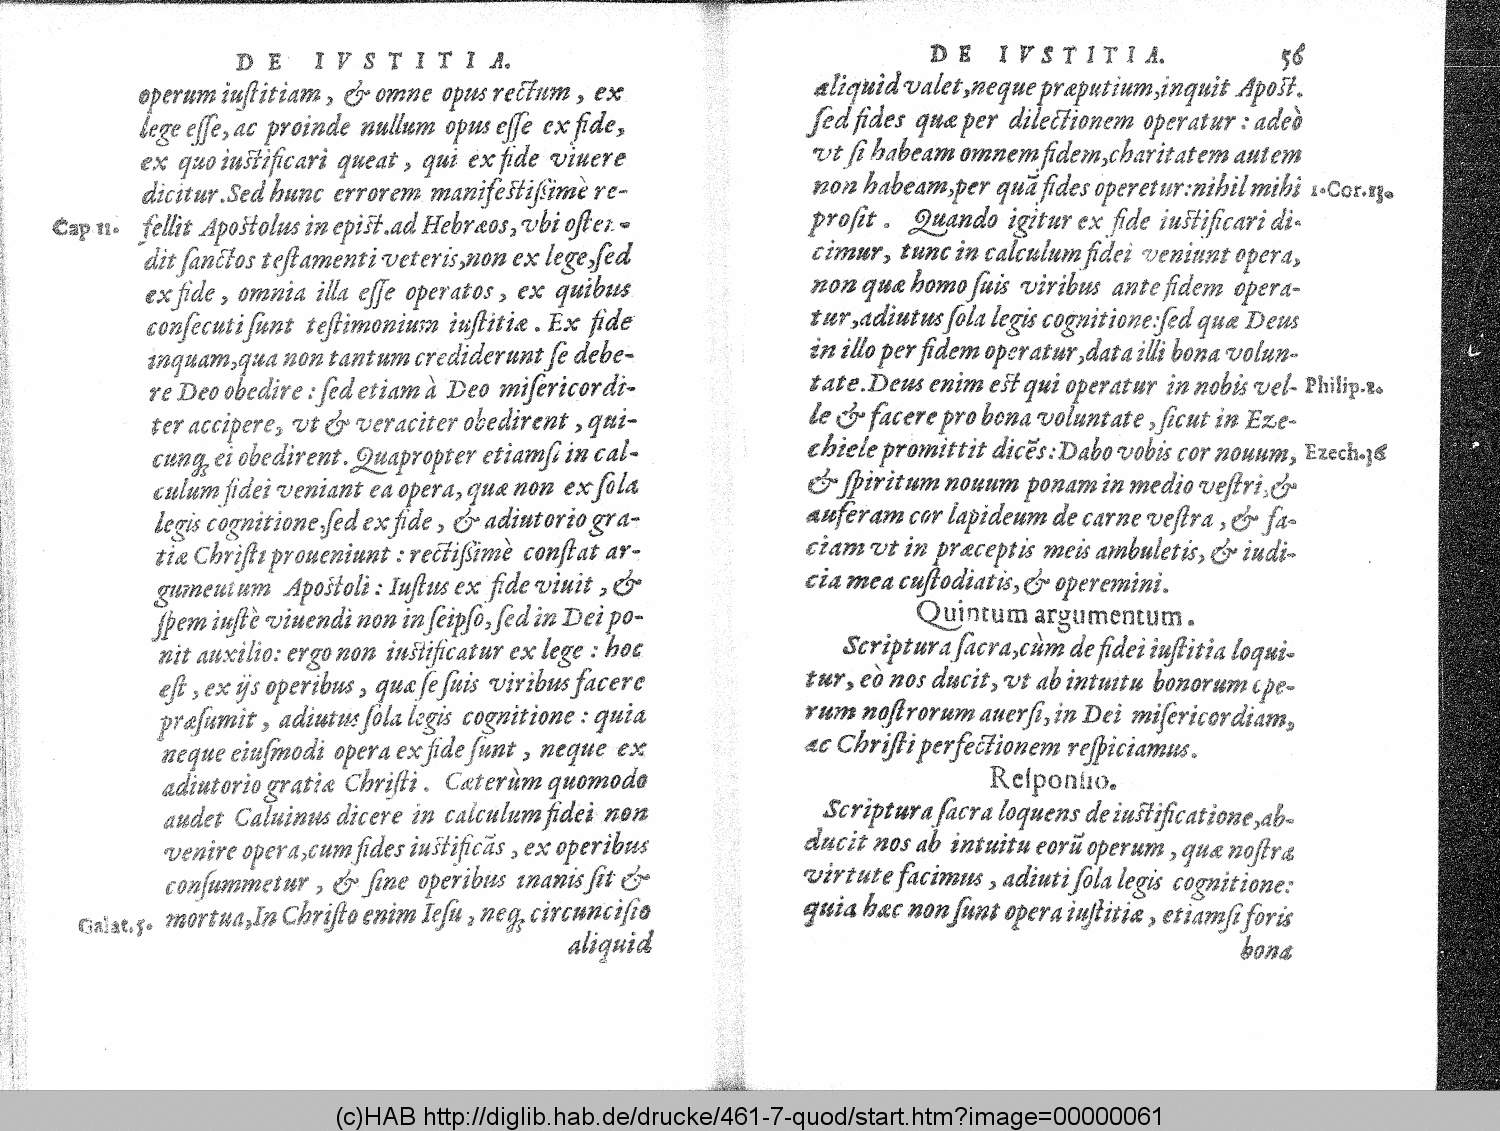 DE IVSTITIA.
operum iuſtitiam, & omne opus rectum, ex
lege eſſe, ac proinde nullum opus eſſe ex fide,
ex quo iuſtificari queat, qui ex fide viuere
dicitur. Sed hunc errorem manifeſtißimè re-
Cap 11. fellit Apoſtolus in epiſt. ad Hebræos, vbi oſten-
dit ſanctos teſtamenti veteris, non ex lege, ſed
ex fide, omnia illa eſſe operatos, ex quibus
conſecuti ſunt teſtimonium iuſtitiæ. Ex fide
inquam, qua non tantum crediderunt ſe debe-
re Deo obedire: ſed etiam à Deo miſericordi-
ter accipere, vt & veraciter obedirent, qui-
cunq; ei obedirent. Quapropter etiamſi in cal-
culum fidei veniant ea opera, quæ non ex ſola
legis cognitione, ſed ex fide, & adiutorio gra-
tiæ Chriſti proueniunt: rectißimè conſtat ar-
gumentum Apoſtoli: Iuſtus ex fide viuit, &
ſpem iuſtè viuendi non in ſeipſo, ſed in Dei po-
nit auxilio: ergo non iuſtificatur ex lege: hoc
eſt, ex ijs operibus, quæ ſe ſuis viribus facere
præſumit, adiutus ſola legis cognitione: quia
neque eiuſmodi opera ex fide ſunt, neque ex
adiutorio gratiæ Chriſti. Cæterùm quomodo
audet Caluinus dicere in calculum fidei non
venire opera, cum fides iuſtificãs, ex operibus
conſummetur, & ſine operibus inanis ſit &
Galat. 5. mortua, In Chriſto enim Ieſu, neq; circunciſio
aliquid
DE IVSTITIA. 56
aliquid valet, neque præputium, inquit Apoſt.
ſed fides quæ per dilectionem operatur: adeò
vt ſi habeam omnem fidem, charitatem autem
non habeam, per quã fides operetur: nihil mihi 1. Cor. 13.
proſit. Quando igitur ex fide iuſtificari di-
cimur, tunc in calculum fidei veniunt opera,
non quæ homo ſuis viribus ante fidem opera-
tur, adiutus ſola legis cognitione: ſed quæ Deus
in illo per fidem operatur, data illi bona volun-
tate. Deus enim eſt qui operatur in nobis vel- Philip. 2.
le & facere pro bona voluntate, ſicut in Eze-
chiele promittit dicẽs: Dabo vobis cor nouum, Ezech. 36
& ſpiritum nouum ponam in medio veſtri, &
auferam cor lapideum de carne veſtra, & fa-
ciam vt in præceptis meis ambuletis, & iudi-
cia mea cuſtodiatis, & operemini.
Quintum argumentum.
Scriptura ſacra, cùm de fidei iuſtitia loqui-
tur, eò nos ducit, vt ab intuitu bonorum ope-
rum noſtrorum auerſi, in Dei miſericordiam,
ac Chriſti perfectionem reſpiciamus.
Reſponſio.
Scriptura ſacra loquens de iuſtificatione, ab-
ducit nos ab intuitu eorũ operum, quæ noſtra
virtute facimus, adiuti ſola legis cognitione:
quia hæc non ſunt opera iuſtitiæ, etiamſi foris
bona
(c)HAB http://diglib.hab.de/drucke/461-7-quod/start.htm?image=00000061